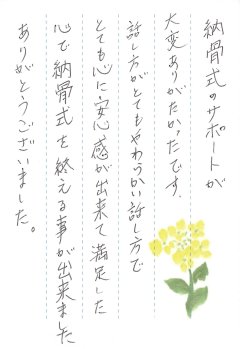 納骨式のサポートが
大変ありがたかったです。
話し方がとてもやわらかい話し方で
とても心に安心感が出来て満足した
心で納骨式を終える事が出来ました
ありがとうございました。